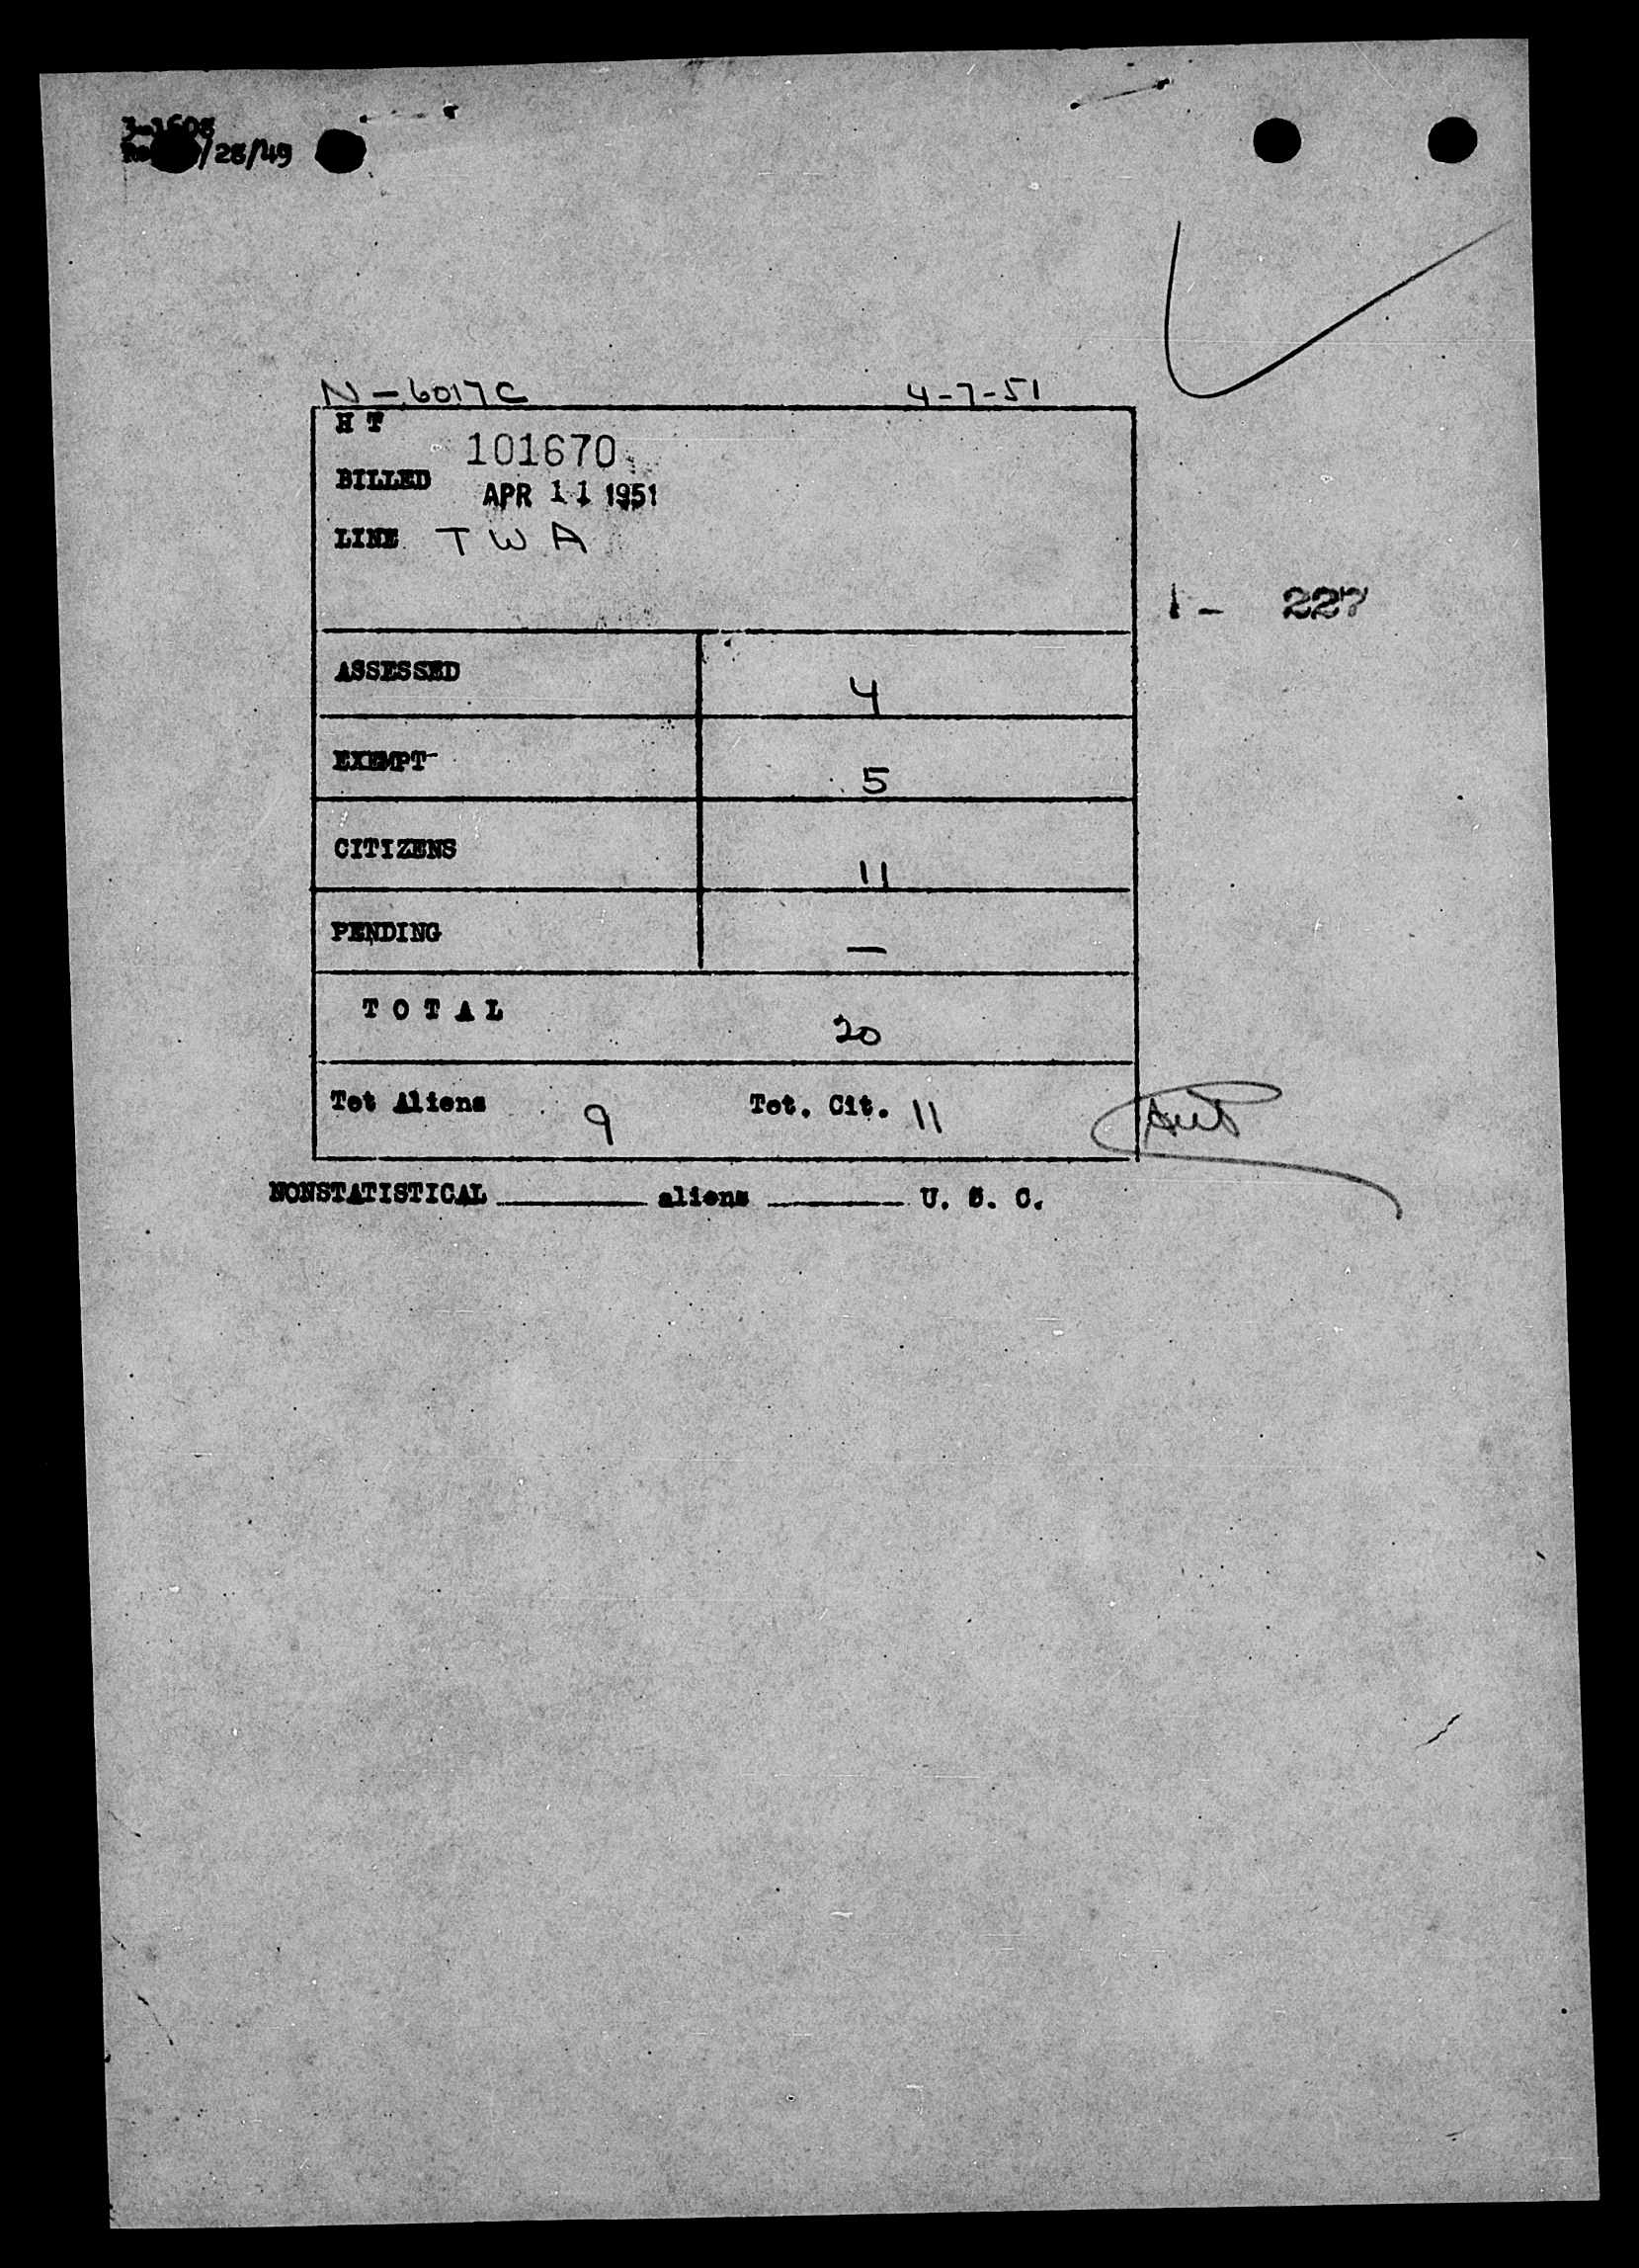 3-1608
/28/49
N-6017C 4-7-51
H T
101670
BILLED APR 11 1951
LINE TWA
1- 227
ASSESSED 4
EXEMPT 5
CITIZENS 11
PENDING —
TOTAL 20
Tot Aliens 9 Tot. Cit. 11
NONSTATISTICAL ______ aliens ______ U. S. C.